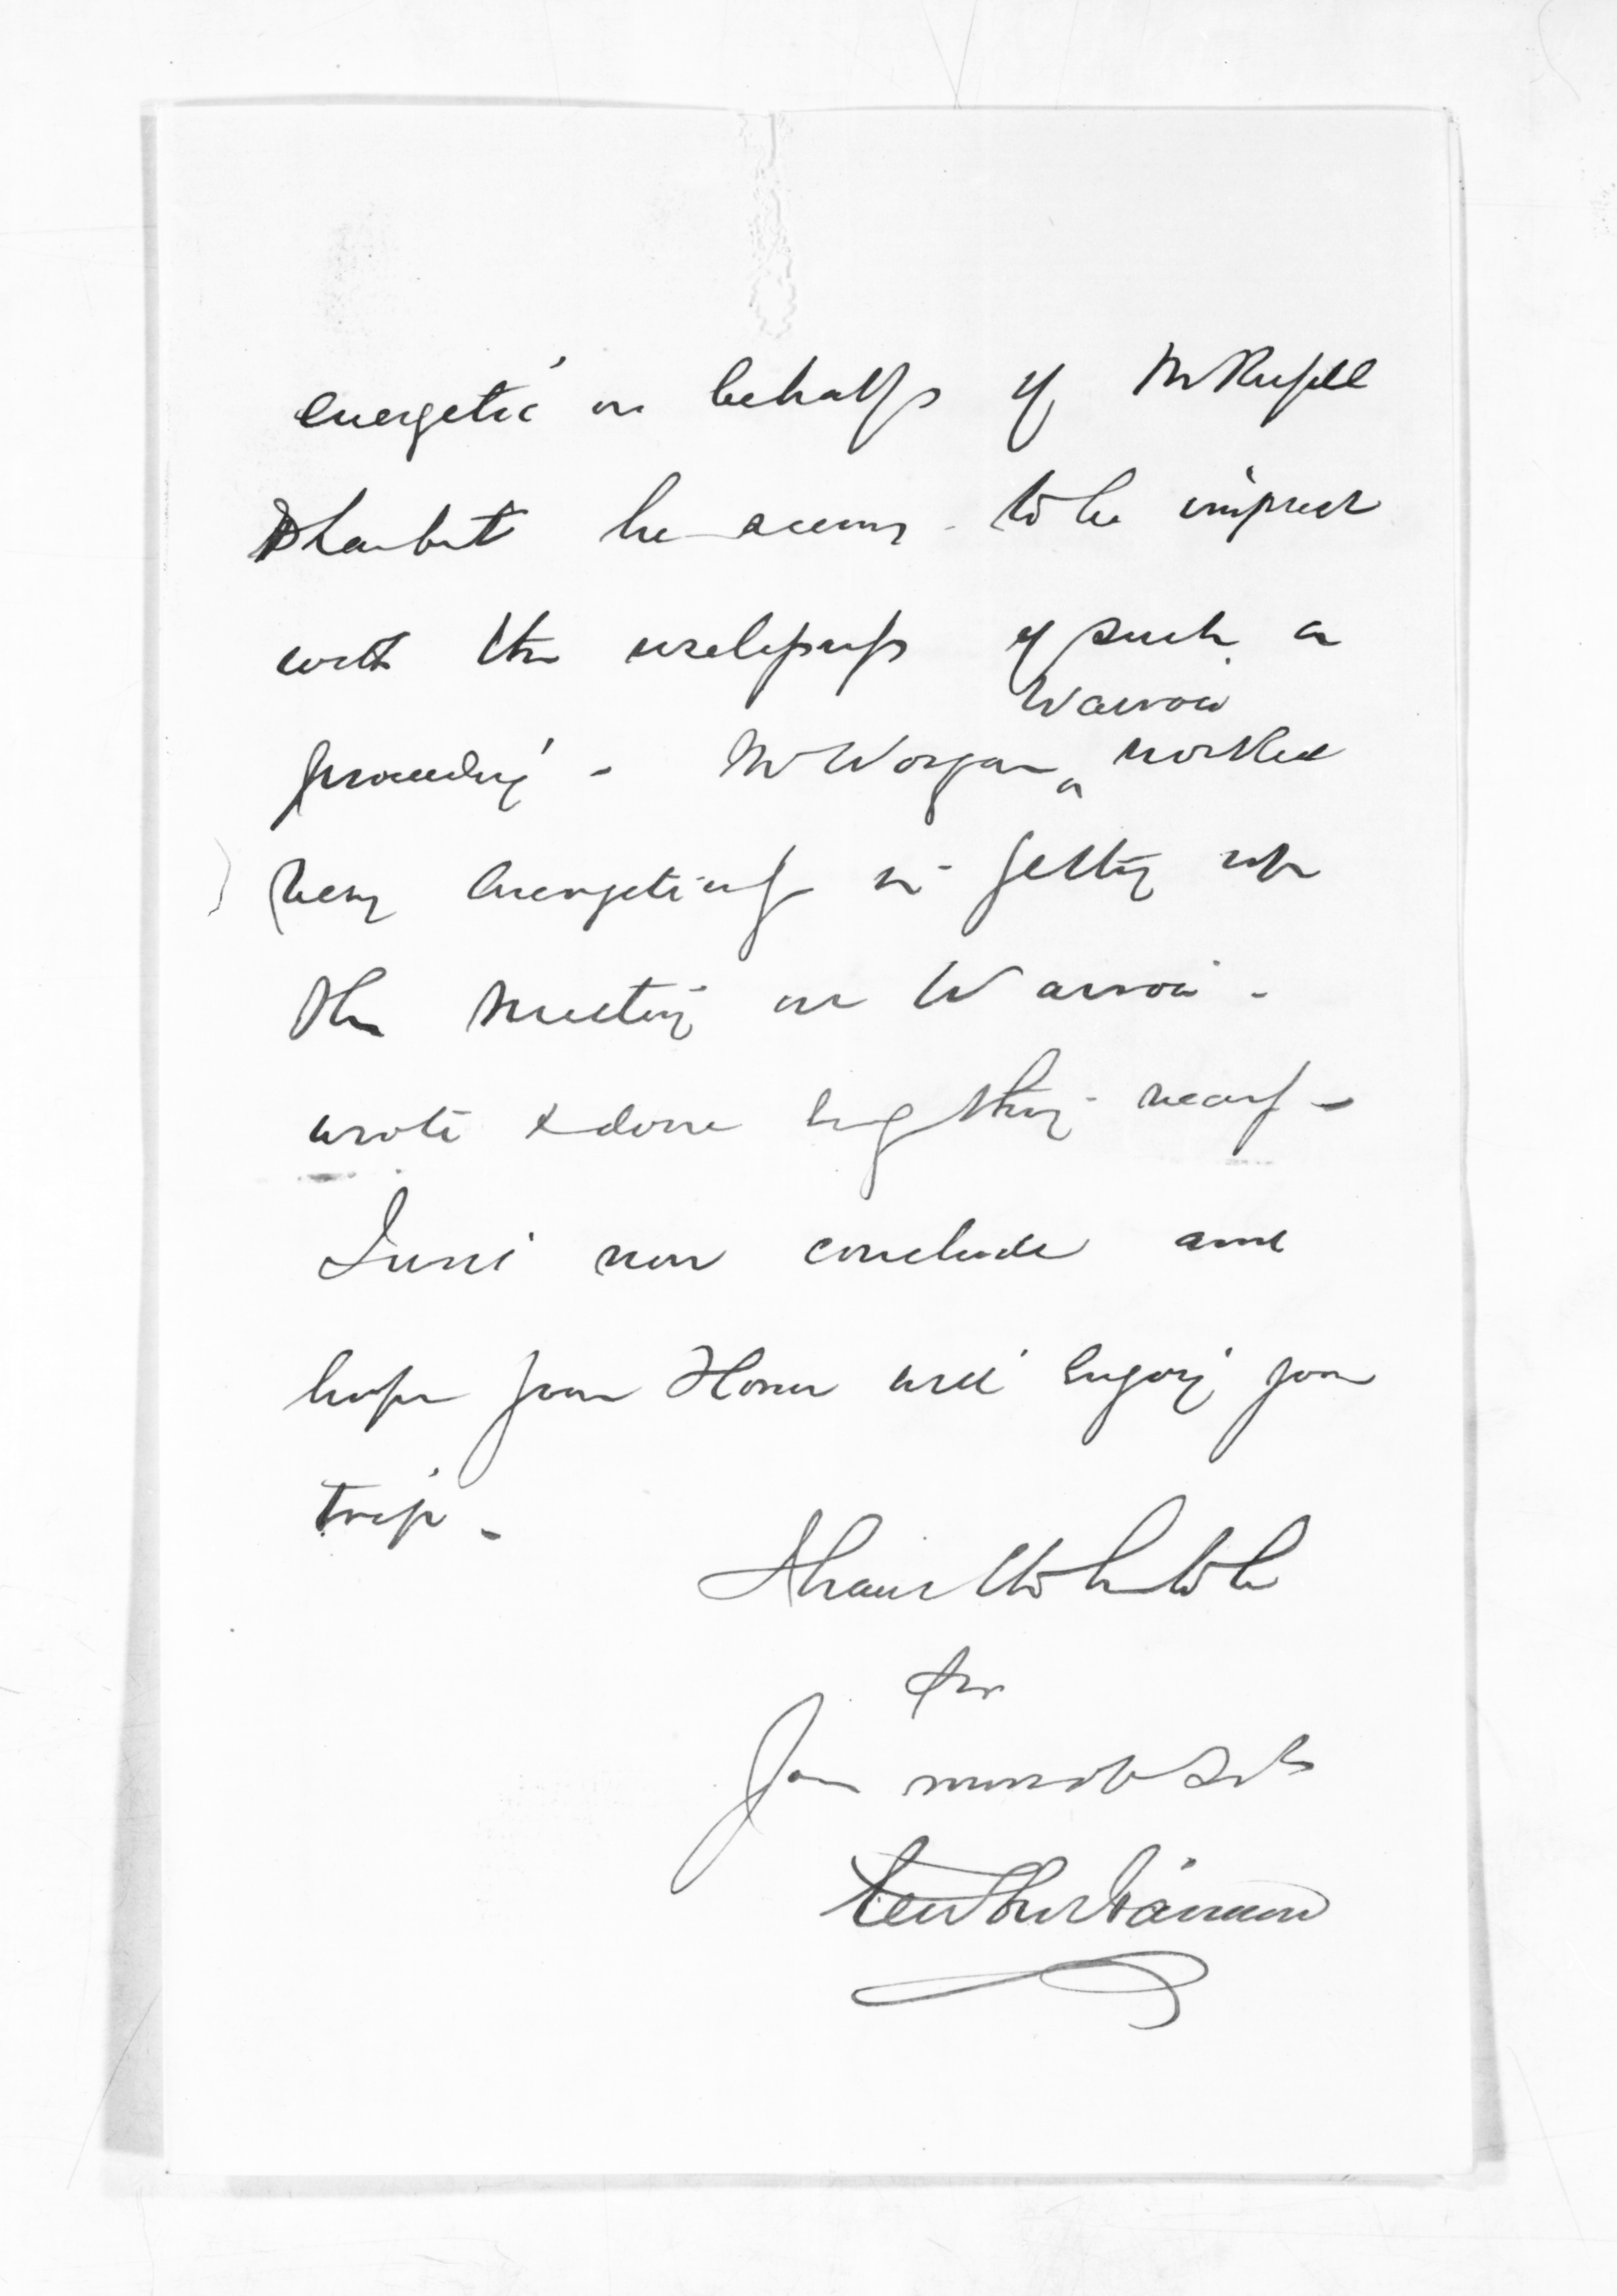 energetic on behalf of Mr Russell
but he seems to be imprest
with the uselessness of such a
Wairoa
proceeding - Mr Worgan ^ worked
very energeticly in getting up
the meeting on Wairoa -
wrote & done everything nearly -
I must now conclude and
hope your Honor will enjoy your
trip -
I have the honor to be
Sir
Your most obdt